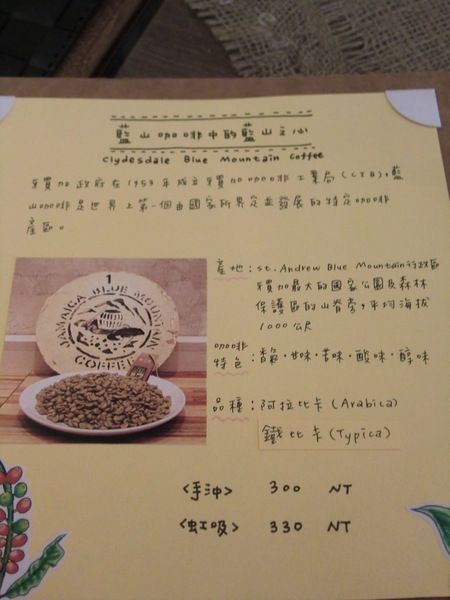 藍山咖啡中的藍山之心
Clydesdale Blue Mountain Coffee
牙買加政府在1953年成立牙買加咖啡工業局(CIB),藍
山咖啡是世界上第一個由國家所界定並發展的特定咖啡
產區。
產地:St. Andrew Blue Mountain行政區
牙買加最大的國家公園及森林
保護區的山脊旁,平均海拔
1000公尺
咖啡
特色:香馥·甘味·苦味·酸味·醇味
品種:阿拉比卡(Arabica)
鐵比卡(Typica)
<手沖> 300 NT
<虹吸> 330 NT
1
JAMAICA BLUE MOUNTAIN
COFFEE